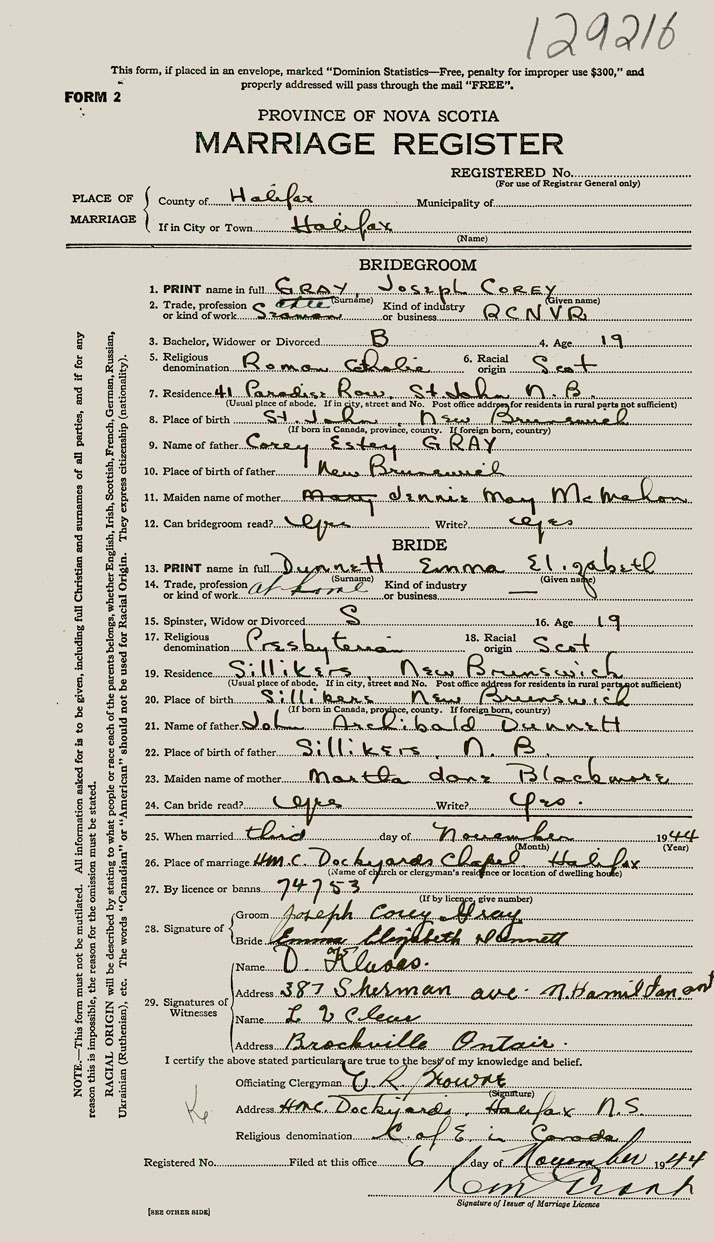 129216
This form, if placed in an envelope, marked "Dominion Statistics—Free, penalty for improper use $300," and
properly addressed will pass through the mail "FREE".
FORM 2
PROVINCE OF NOVA SCOTIA
MARRIAGE REGISTER
REGISTERED No.
(For use of Registrar General only)
PLACE OF MARRIAGE
County of Halifax Municipality of
If in City or Town Halifax
(Name)
BRIDEGROOM
1. PRINT name in full GRAY, Joseph Corey
(Surname) (Given name)
2. Trade, profession or kind of work Seaman Kind of industry or business RCNVR
3. Bachelor, Widower or Divorced B 4. Age 19
5. Religious denomination Roman 6. Racial origin Scot
7. Residence 41 Paradise Row, St. John N.B.
(Usual place of abode. If in city, street and No. Post office address for residents in rural parts not sufficient)
8. Place of birth St. John, New Brunswick
(If born in Canada, province, county. If foreign born, country)
9. Name of father Corey Estey GRAY
10. Place of birth of father New Brunswick
11. Maiden name of mother Mary Jennie May McMahon
12. Can bridegroom read? Yes Write? Yes
BRIDE
13. PRINT name in full Dunnett Emma Elizabeth
(Surname) (Given name)
14. Trade, profession or kind of work at home Kind of industry or business —
15. Spinster, Widow or Divorced S 16. Age 19
17. Religious denomination Presbyterian 18. Racial origin Scot
19. Residence Sillikers New Brunswick
(Usual place of abode. If in city, street and No. Post office address for residents in rural parts not sufficient)
20. Place of birth Sillikers New Brunswick
(If born in Canada, province, county. If foreign born, country)
21. Name of father John Archibald Dunnett
22. Place of birth of father Sillikers, N.B.
23. Maiden name of mother Martha Jane Blackmore
24. Can bride read? Yes Write? Yes.
25. When married third day of November 1944
(Month) (Year)
26. Place of marriage HMC Dockyards Chapel Halifax
(Name of church or clergyman's residence or location of dwelling house)
27. By licence or banns 74753
(If by licence, give number)
28. Signature of
Groom Joseph Corey Gray
Bride Emma Elizabeth Dunnett
29. Signatures of Witnesses
Name D.
Address 387 Sherman ave. N. Hamilton, ont
Name L V
Address Brockville Ontair.
I certify the above stated particulars are true to the best of my knowledge and belief.
Officiating Clergyman R. Browne
(Signature)
Address HMC. Dockyards, Halifax N.S.
Religious denomination C. of E. in Canada
Registered No. Filed at this office 6 day of November 1944
Signature of Issuer of Marriage Licence
[SEE OTHER SIDE]
NOTE.—This form must not be mutilated. All information asked for is to be given, including full Christian and surnames of all parties, and if for any
reason this is impossible, the reason for the omission must be stated.
RACIAL ORIGIN will be described by stating to what people or race each of the parents belongs, whether English, Irish, Scottish, French, German, Russian,
Ukrainian (Ruthenian), etc. The words "Canadian" or "American" should not be used for Racial Origin. They express citizenship (nationality).